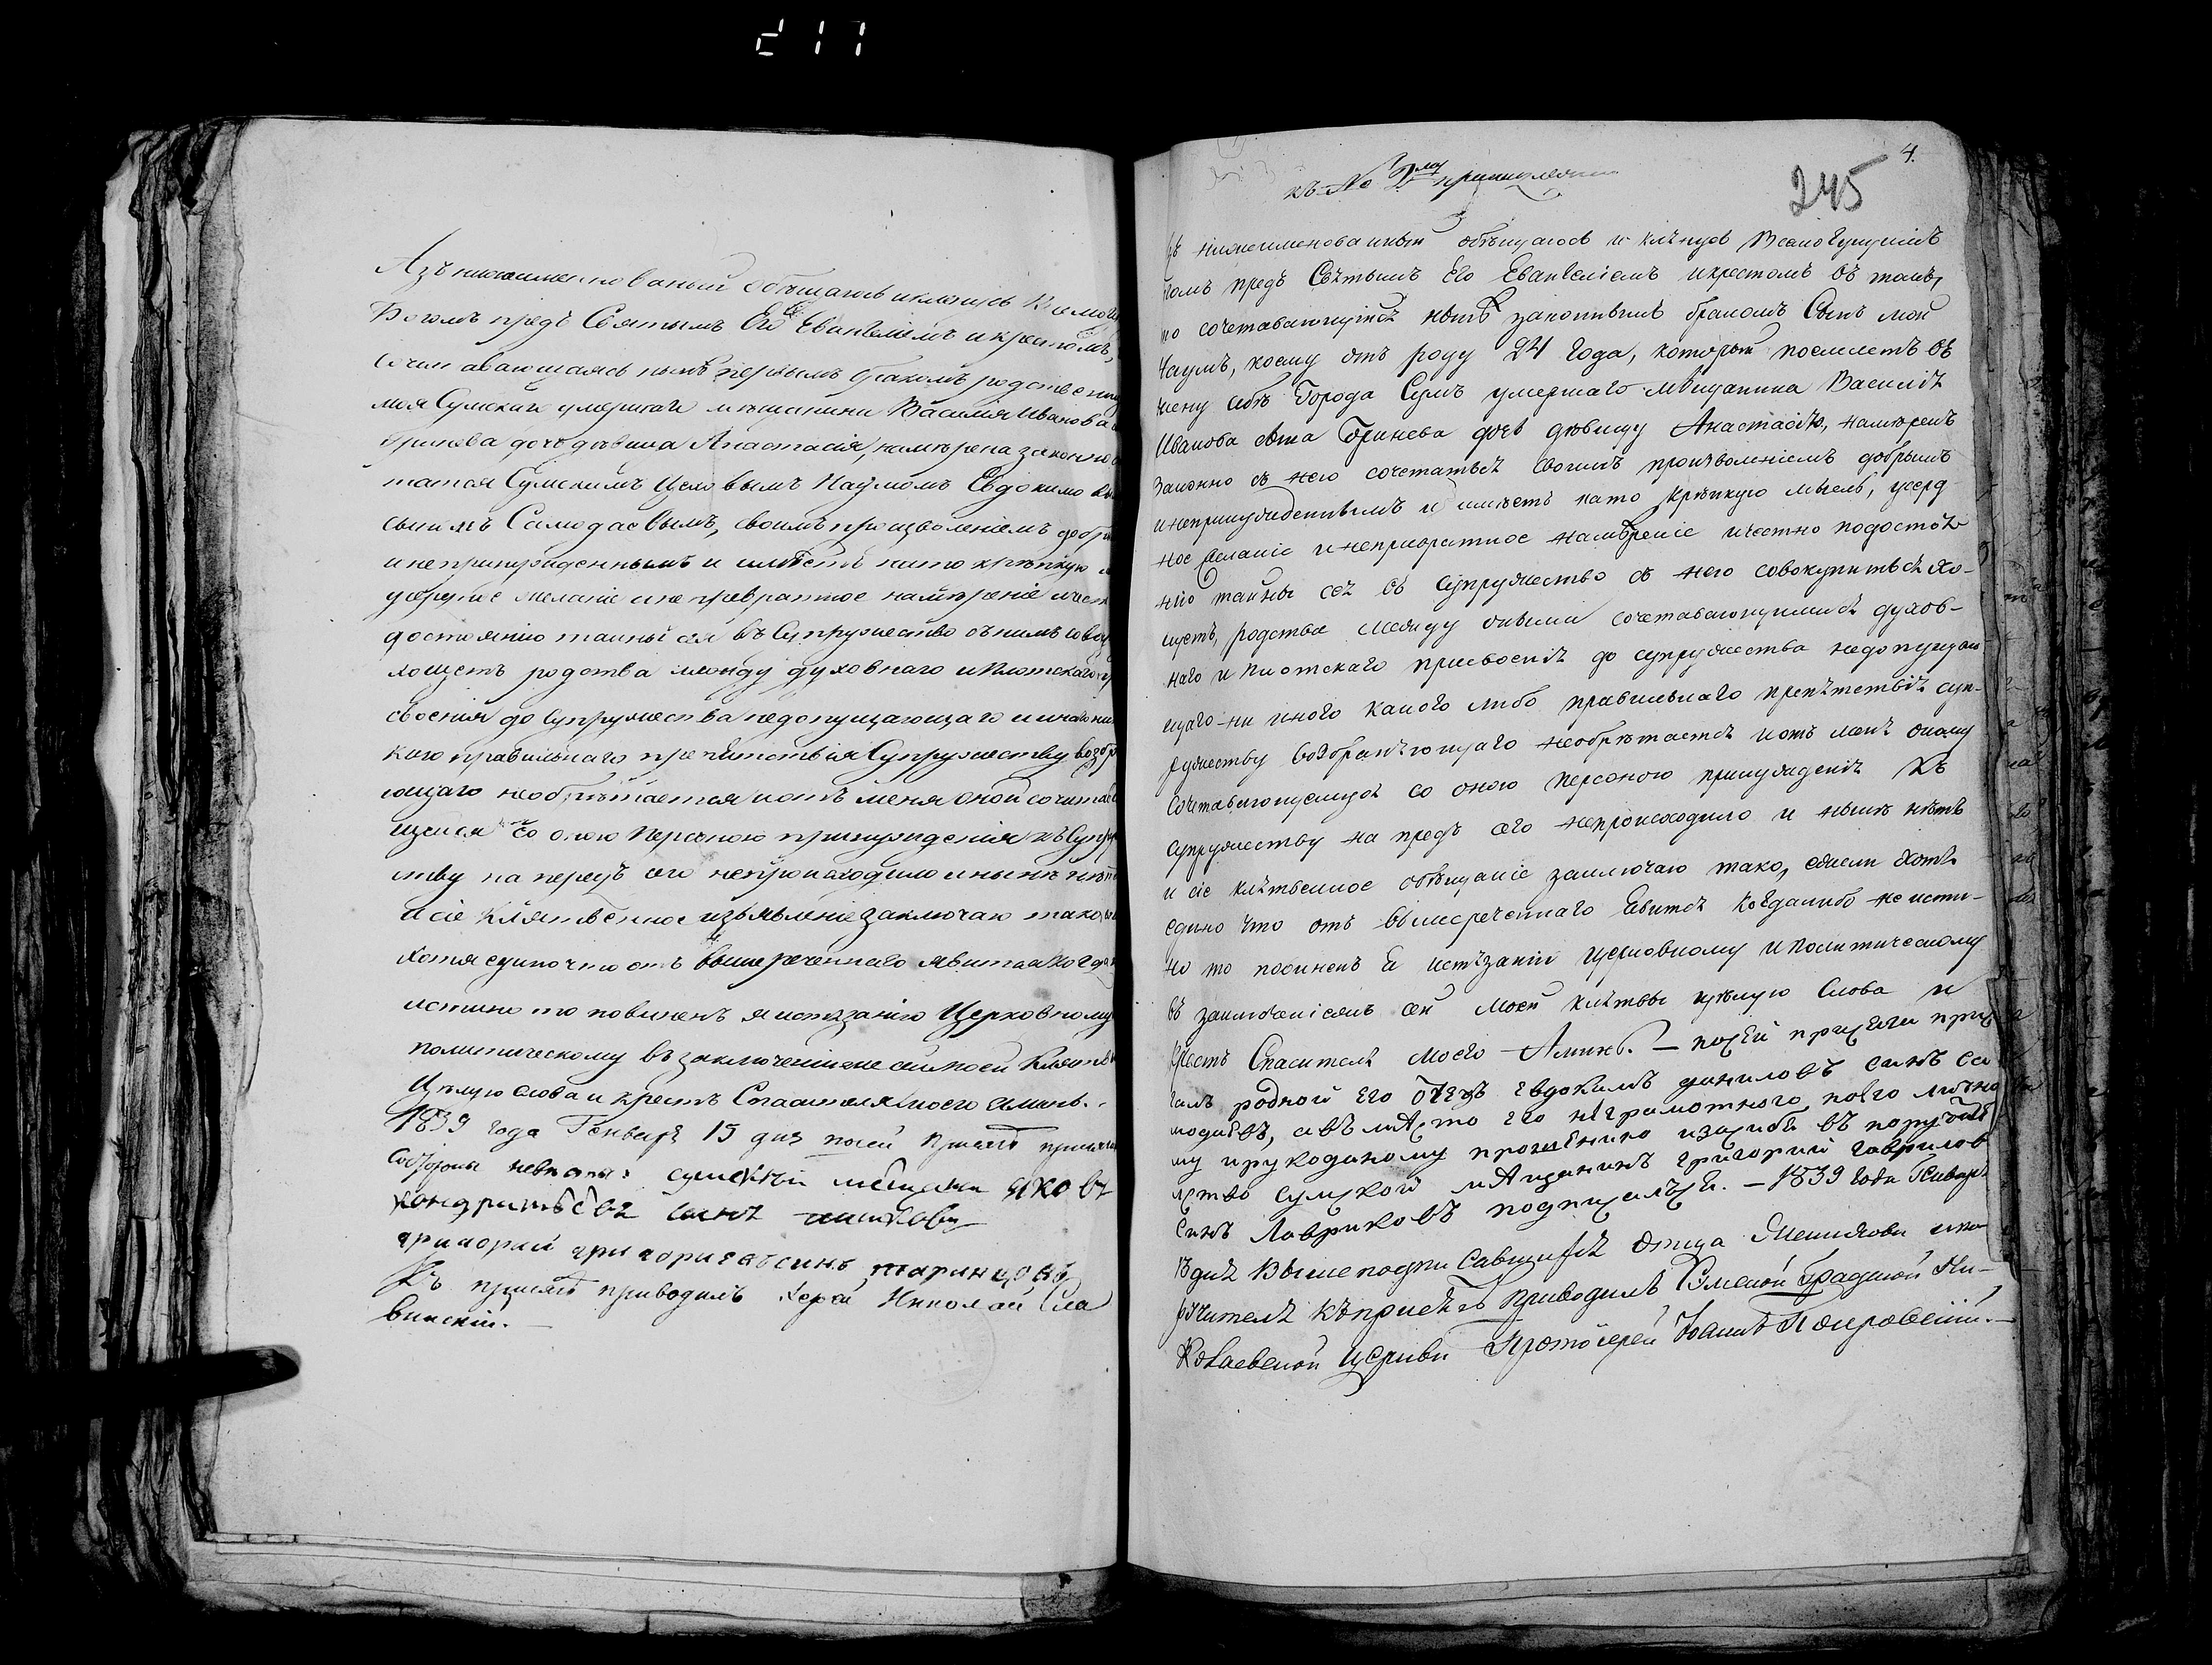 Азъ нижеименнованый обѣщаюсь и клянусь Всемог
Богомъ предъ Святымъ Его Евангелиемъ и крестомъ,
сочетавающаясь нынѣ первымъ бракомъ родствен
моя Сумскаго умершаго мѣщанина Василія Иванова
Гринева дочь дѣвица Анастасія, намѣрена законно
татся Сумскимъ Цеховымъ Наумомъ Евдокимовы
сыномъ Самодаевымъ, своимъ произволеніемъ добры
и непринужденнымъ и имѣетъ на то крѣпкую
усердное желаніе и не превратное намѣреніе и чест
достоянію тайны сея въ Супружество съ нимъ совок
хощетъ родства между духовнаго и плотскаго
своенія до Супружества недопущающаго и инаго ни
каго правильнаго препятствія Супружеству возбр
ющаго необрѣтается и отъ меня оной сочетав
щейся со оною Персоною принужденія къ Супр
ству на передъ сего непроисходило и нынѣ нѣт
И сіе Клятвенное изъявленіе заключаю тако,
хотя едино что отъ вышереченнаго явится когда
истинно то повиненъ я истязанію Церковному
политическому въ заключеніи же сей моей Клятв
Цѣлую слова и крестъ Спасителя моего аминь.
1839 года Генваря 15 дня по сей присягѣ
со стороны невесты: сумский мещанин яковъ
кондратьевъ синъ
григорий григориевъ синъ таринцовъ
Къ присягѣ приводилъ Іерей Николай Сла
винскій.
4.
245
къ № 2му принадлежит
нижеименованный обѣщаюсь и клянусь Всемогущимъ
Богомъ предъ Святымъ Его Евангеліемъ и крестомъ въ томъ,
что сочетавающійся нынѣ законнымъ бракомъ Сынъ мой
Наумъ, коему отъ роду 24 года, который поемлетъ въ
жену себѣ Города Сумъ умершаго мѣщанина Василія
Иванова сына Гринева дочь дѣвицу Анастасію, намѣренъ
Законно съ нею сочетаться своимъ произволеніемъ добрымъ
и непринужденнымъ и имѣетъ на то крѣпкую мысль, усерд
ное желаніе и непревратное намѣреніе и честно по достоя
нію тайны сея въ супружество съ нею совокупиться хо-
щетъ, родства между оными сочетавающимися духов-
наго и Плотскаго присвоенія до супружества недопущаю
щаго ни иного какого либо правильнаго препятствія суп-
ружеству возбраняющаго необрѣтается и отъ меня оному
сочетавающемуся со оною персоною принужденія къ
супружеству на предъ сего непроисходило и нынѣ нѣтъ
и сіе клятвенное обѣщаніе заключаю тако, ежели хотя
едино что отъ вышереченнаго явится когда либо не исти-
но то повиненъ я истязанію церковному и политическому
въ заключеніе сей моей клятвы цѣлую Слова и
Крестъ Спасителя моего Аминь. — по сей присяги прис
галъ родной его отецъ Евдокимъ даниловъ синъ Са
модаевъ, а въ место его неграмотного по его лично
му и рукоданому прошению и за себя въ поручите
лство сумской мещанинъ григорий гаврилов
синъ Лавриковъ подписалъся. — 1839 года Января
дня Вышеподписавшихся Отца Жениховa и по
ручителя къ присягѣ Приводилъ Сумской Градской Ни-
колаевской Церкви Протоіерей Іоаннъ Покровскій.